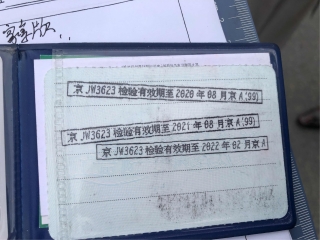 京JW3623 检验有效期至2020年08月京A(99)
京JW3623 检验有效期至2021年08月京A(99)
京JW3623 检验有效期至2022年02月京A